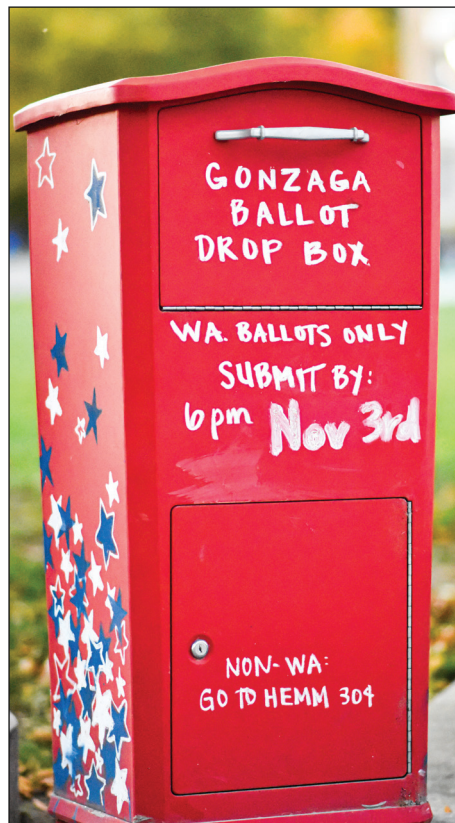 GONZAGA
BALLOT
DROP BOX
WA. BALLOTS ONLY
SUBMIT BY:
6pm Nov 3rd
NON-WA:
GO TO HEMM 304